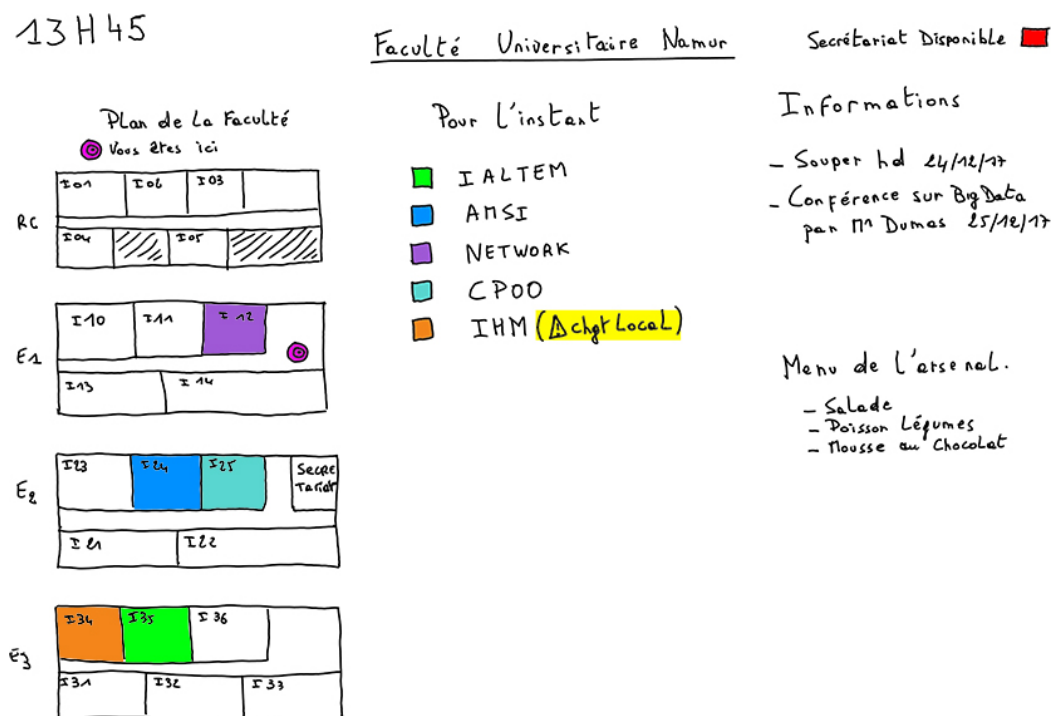 13H45
Faculté Universitaire Namur
Secrétariat Disponible
Plan de La Faculté
Vous êtes ici
RC
I01 I02 I03
I04 I05
E1
I10 I11 I12
I13 I14
E2
I23 I24 I25 Secre
Tariat
I21 I22
E3
I34 I35 I36
I31 I32 I33
Pour l'instant
IALTEM
AMSI
NETWORK
CPOO
IHM (⚠ chgt Local)
Informations
- Souper 24/12/17
- Conférence sur Big Data
par Mr Dumas 25/12/17
Menu de l'arsenal.
- Salade
- Poisson Légumes
- Mousse au Chocolat